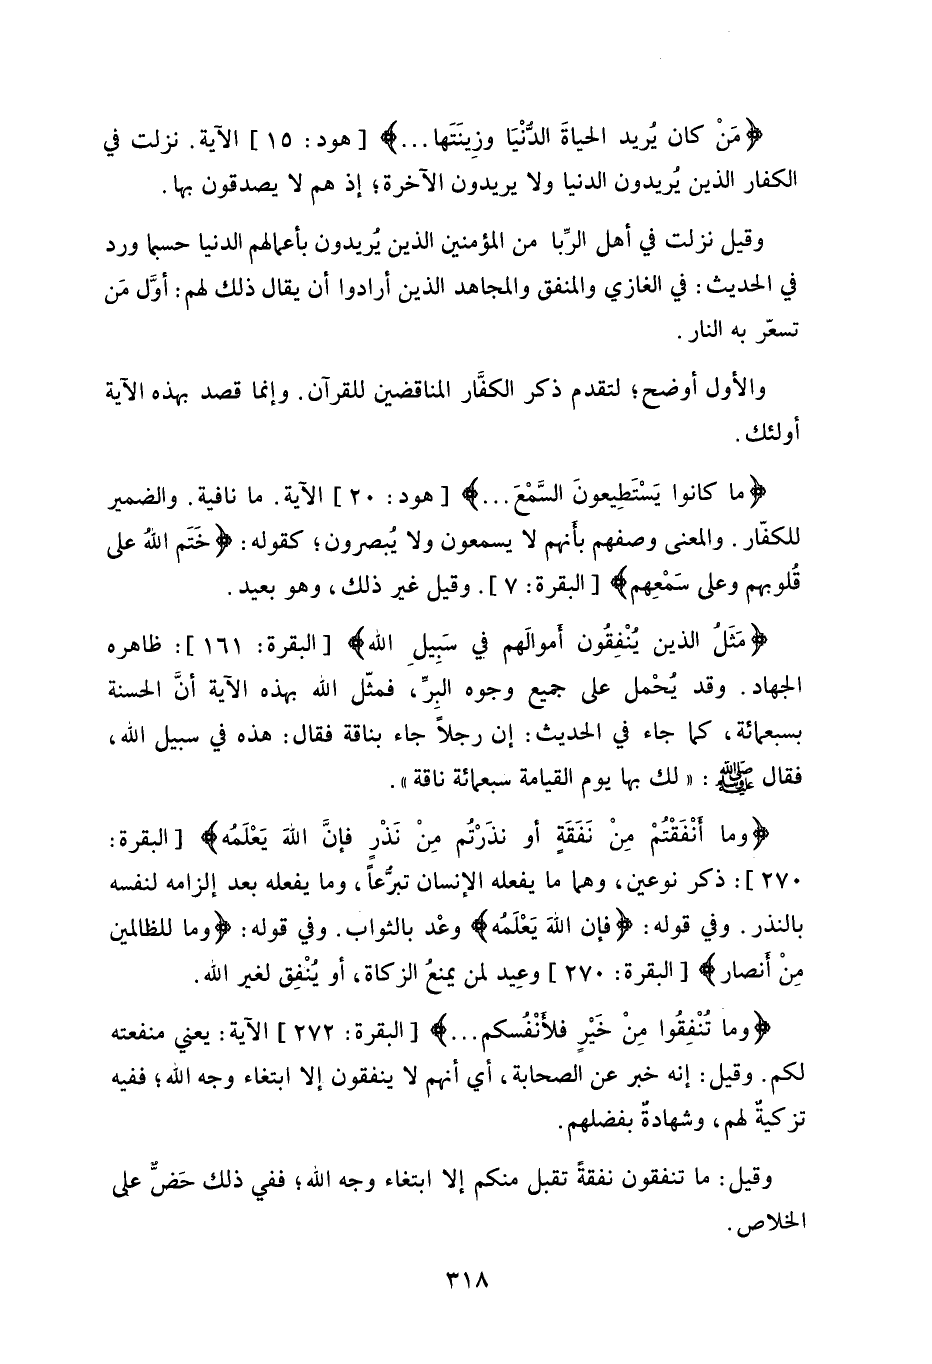 ﴿مَنْ كان يُريد الحياةَ الدُّنْيَا وزِينَتَها...﴾ [هود: ١٥] الآية. نزلت في
الكفار الذين يُريدون الدنيا ولا يريدون الآخرة؛ إذ هم لا يصدقون بها.
وقيل نزلت في أهل الرِّبا من المؤمنين الذين يُريدون بأعمالهم الدنيا حسبما ورد
في الحديث: في الغازي والمنفق والمجاهد الذين أرادوا أن يقال ذلك لهم: أوَّل مَن
تسعّر به النار.
والأول أوضح؛ لتقدم ذكر الكفَّار المناقضين للقرآن. وإنما قصد بهذه الآية
أولئك.
﴿ما كانوا يَسْتَطِيعونَ السَّمْعَ...﴾ [هود: ٢٠] الآية. ما نافية. والضمير
للكفّار. والمعنى وصفهم بأَنهم لا يسمعون ولا يُبصرون؛ كقوله: ﴿خَتَم اللهُ على
قُلوبهم وعلى سَمْعِهم﴾ [البقرة: ٧]. وقيل غير ذلك، وهو بعيد.
﴿مَثَلُ الذين يُنْفِقُون أَموالَهم في سَبِيلِ الله﴾ [البقرة: ١٦١]: ظاهره
الجهاد. وقد يُحْمل على جميع وجوه البِرِّ، فمثّل الله بهذه الآية أنَّ الحسنة
بسبعمائة، كما جاء في الحديث: إن رجلاً جاء بناقة فقال: هذه في سبيل الله،
فقال ﷺ: «لك بها يوم القيامة سبعمائة ناقة».
﴿وما أَنْفَقْتُمْ مِنْ نَفَقَةٍ أو نذَرْتُم مِنْ نَذْرٍ فإنَّ اللهَ يَعْلَمُه﴾ [البقرة:
٢٧٠]: ذكر نوعين، وهما ما يفعله الإنسان تبرُّعاً، وما يفعله بعد إلزامه لنفسه
بالنذر. وفي قوله: ﴿فإن اللهَ يَعْلَمُه﴾ وعْد بالثواب. وفي قوله: ﴿وما للظالمين
مِنْ أَنصار﴾ [البقرة: ٢٧٠] وعِيد لمن يمنعُ الزكاة، أو يُنْفِق لغير الله.
﴿وما تُنْفِقُوا مِنْ خَيْرٍ فلأَنْفُسكم...﴾ [البقرة: ٢٧٢] الآية: يعني منفعته
لكم. وقيل: إنه خبر عن الصحابة، أي أنهم لا ينفقون إلا ابتغاء وجه الله؛ ففيه
تزكيةٌ لهم، وشهادةٌ بفضلهم.
وقيل: ما تنفقون نفقةً تقبل منكم إلا ابتغاء وجه الله؛ ففي ذلك حَضٌّ على
الخلاص.
٣١٨